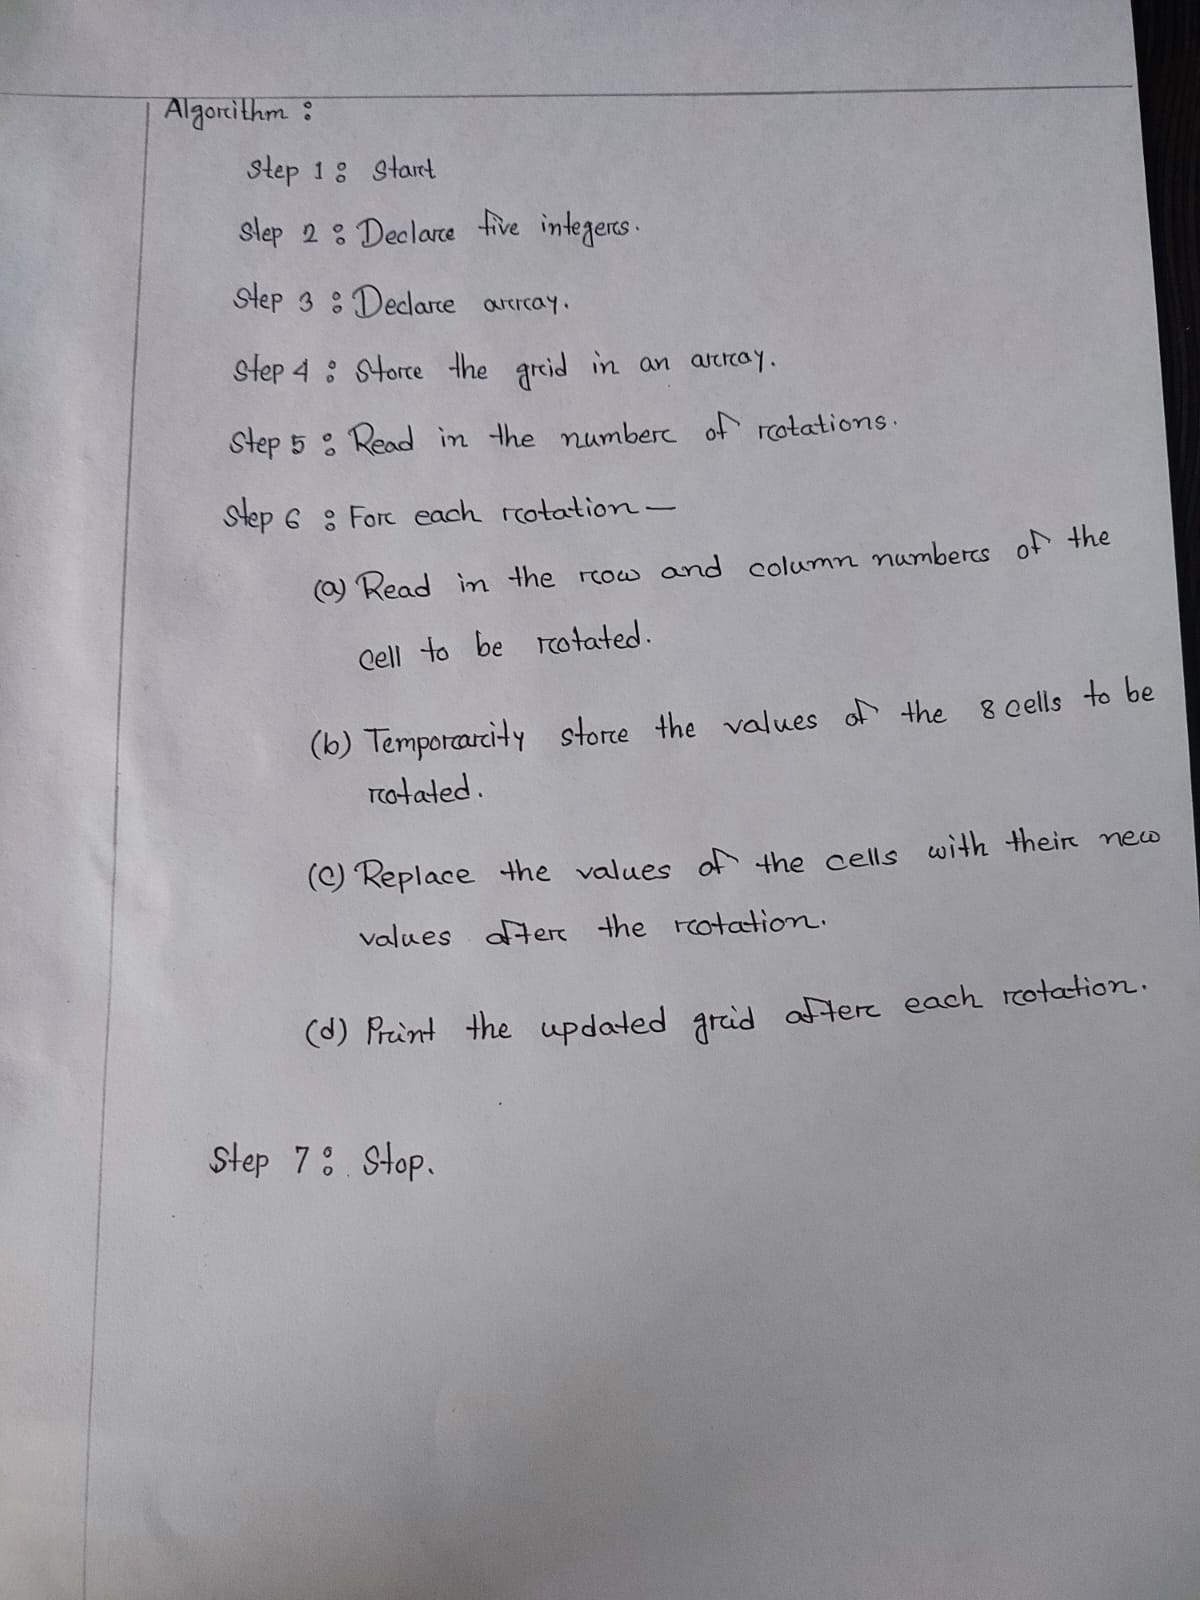 Algorithm :
Step 1 : Start
Step 2 : Declare five integers.
Step 3 : Declare array.
Step 4 : Store the grid in an array.
Step 5 : Read in the number of rotations.
Step 6 : For each rotation —
(a) Read in the row and column numbers of the
cell to be rotated.
(b) Temporarity store the values of the 8 cells to be
rotated.
(c) Replace the values of the cells with their new
values after the rotation.
(d) Print the updated grid after each rotation.
Step 7 : Stop.